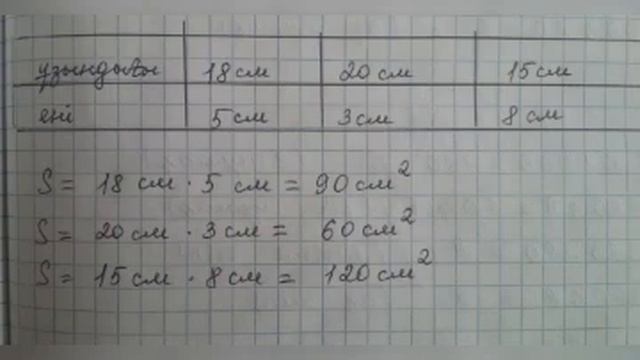 ұзындығы 18 см 20 см 15 см
ені 5 см 3 см 8 см
S = 18 см · 5 см = 90 см²
S = 20 см · 3 см = 60 см²
S = 15 см · 8 см = 120 см²